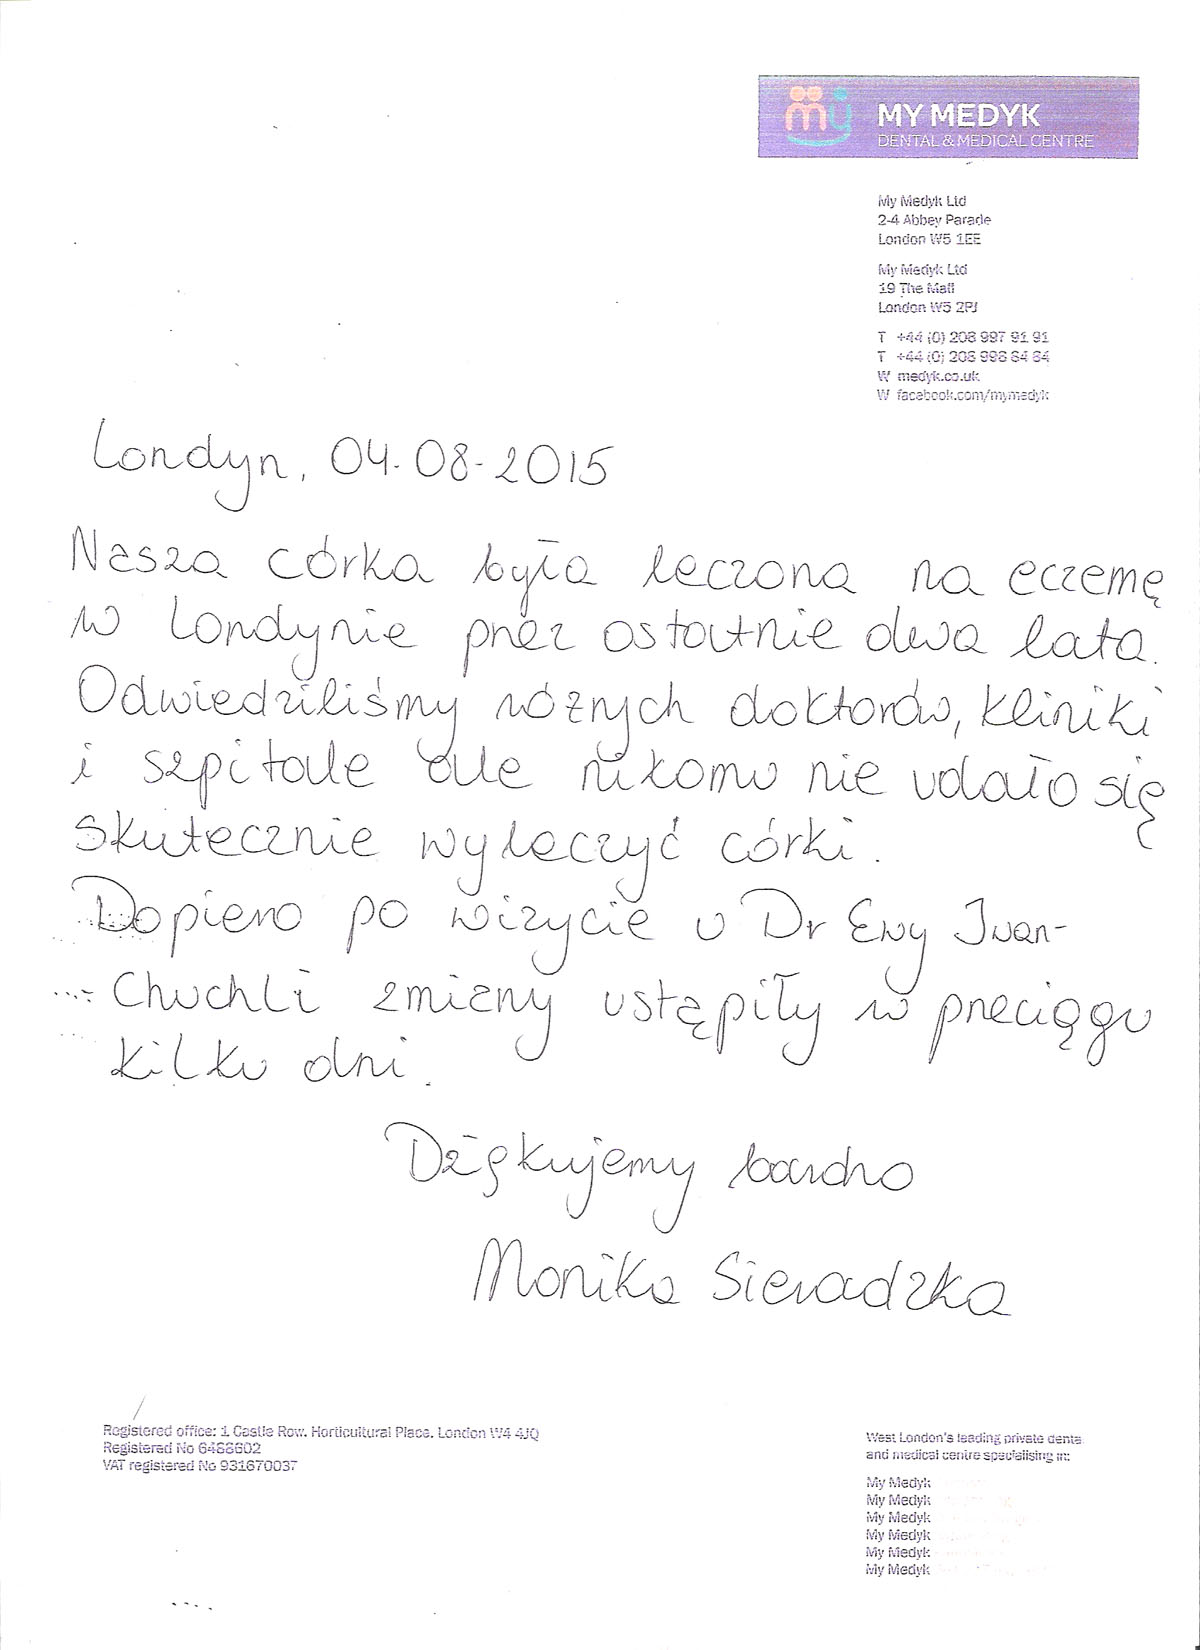 my MY MEDYK
DENTAL & MEDICAL CENTRE
My Medyk Ltd
2-4 Abbey Parade
London W5 1EE
My Medyk Ltd
19 The Mall
London W5 2PJ
T +44 (0) 208 997 91 91
T +44 (0) 208 998 84 84
W medyk.co.uk
W facebook.com/mymedyk
Londyn, 04-08-2015
Nasza córka była leczona na eczemę
w Londynie przez ostatnie dwa lata.
Odwiedziliśmy różnych doktorów, kliniki
i szpitale ale nikomu nie udało się
skutecznie wyleczyć córki.
Dopiero po wizycie u Dr Ewy Iwan-
Chuchli zmiany ustąpiły w przeciągu
kilku dni.
Dziękujemy bardzo
Monika Sieradzka
Registered office: 1 Castle Row, Horticultural Place, London W4 4JQ
Registered No 6488602
VAT registered No 931670037
West London's leading private dental
and medical centre specialising in:
My Medyk
My Medyk
My Medyk
My Medyk
My Medyk
My Medyk